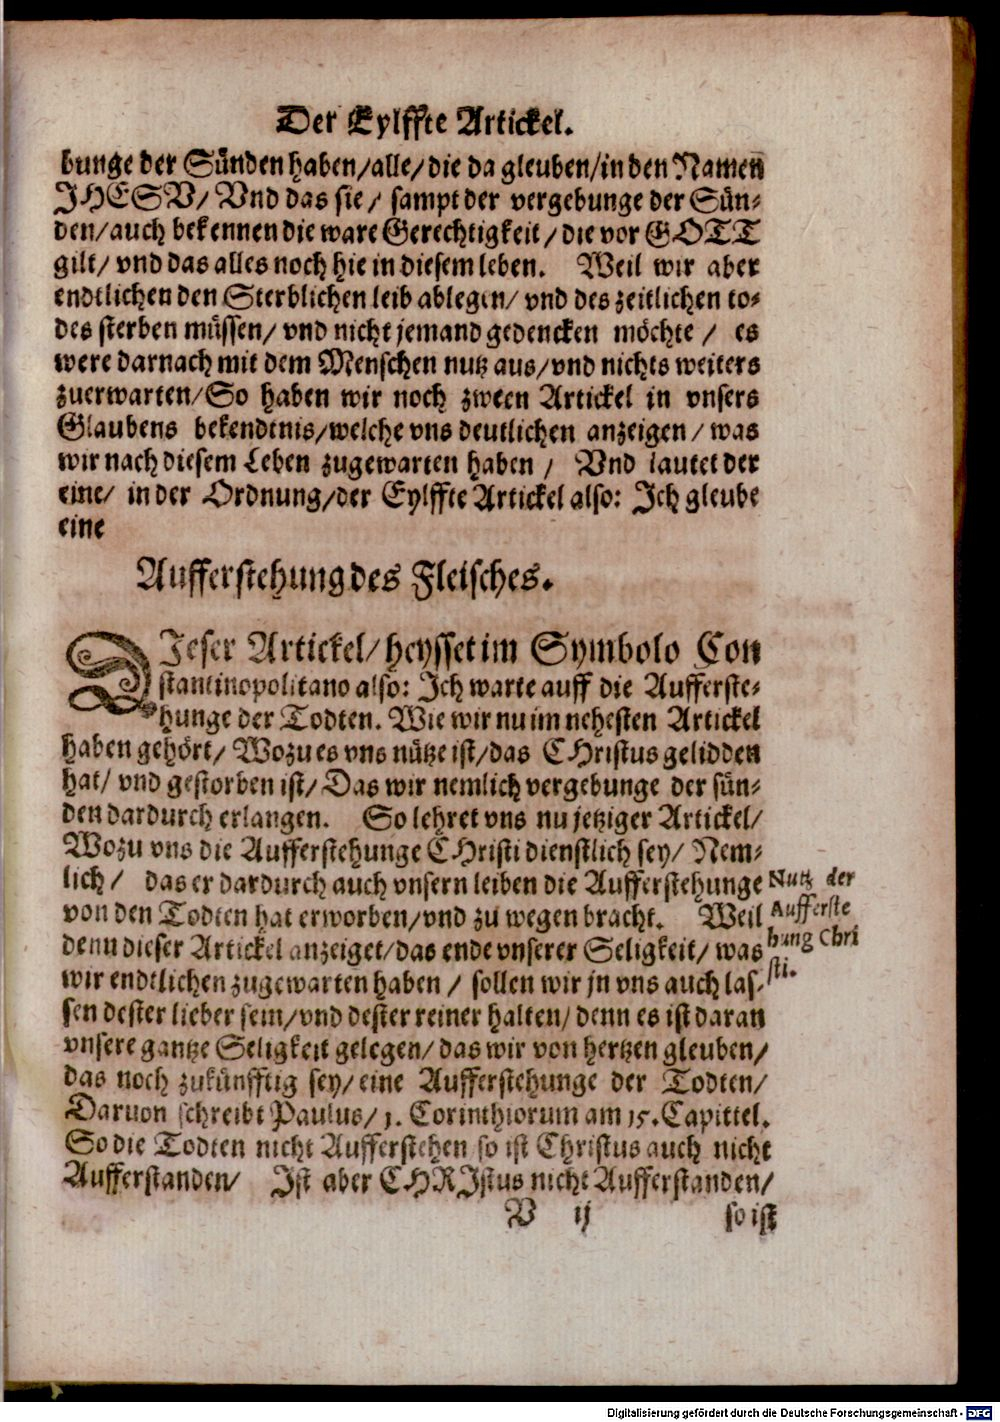 Der Eylffte Artickel.
bunge der Sünden haben/alle/die da gleuben/in den Namen
JHESV/ Vnd das sie/ sampt der vergebunge der Sün-
den/auch bekennen die ware Gerechtigkeit/die vor GOTT
gilt/ vnd das alles noch hie in diesem leben. Weil wir aber
endtlichen den Sterblichen leib ablegen/ vnd des zeitlichen to-
des sterben müssen/ vnd nicht jemand gedencken möchte / es
were darnach mit dem Menschen nutz aus/vnd nichts weiters
zuerwarten/So haben wir noch zween Artickel in vnsers
Glaubens bekendtnis/welche vns deutlichen anzeigen/was
wir nach diesem Leben zugewarten haben / Vnd lautet der
eine/ in der Ordnung/der Eylffte Artickel also: Ich gleube
eine
Aufferstehung des Fleisches.
DJeser Artickel/heysset im Symbolo Con
stantinopolitano also: Ich warte auff die Aufferste-
hunge der Todten. Wie wir nu im nehesten Artickel
haben gehört/ Wozu es vns nütze ist/das CHristus gelidden
hat/ vnd gestorben ist/ Das wir nemlich vergebunge der sün-
den dardurch erlangen. So lehret vns nu jetziger Artickel/
Wozu vns die Aufferstehunge CHristi dienstlich sey/ Nem-
lich / das er dardurch auch vnsern leiben die Aufferstehunge
von den Todten hat erworben/vnd zu wegen bracht. Weil
denn dieser Artickel anzeiget/das ende vnserer Seligkeit/ was
wir endtlichen zugewarten haben / sollen wir jn vns auch las-
sen dester lieber sein/vnd dester reiner halten/denn es ist daran
vnsere gantze Seligkeit gelegen/das wir von hertzen gleuben/
das noch zukünfftig sey/eine Aufferstehunge der Todten/
Daruon schreibt Paulus/ 1. Corinthiorum am 15. Capittel.
So die Todten nicht Aufferstehen so ist Christus auch nicht
Aufferstanden/ Ist aber CHRJstus nicht Aufferstanden/
V ij so ist
Nutz der
Aufferste
hung Chri
sti.
Digitalisierung gefördert durch die Deutsche Forschungsgemeinschaft - DFG